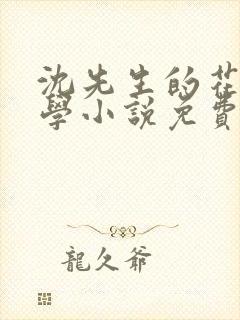 沈先生的花
學小說免費
龍久爺